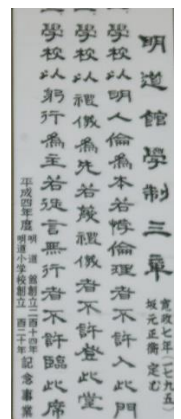 明道館學制三章
寛政七年(一七九五)
坂元正衡定む
一學校以明人倫爲本若悖倫理者不許入此門
一學校以禮儀爲先若廢禮儀者不許登此堂
一學校以躬行爲主若徒言無行者不許臨此席
平成四年度
明道館創立二百十四年
明道小学校創立百二十年
記念事業